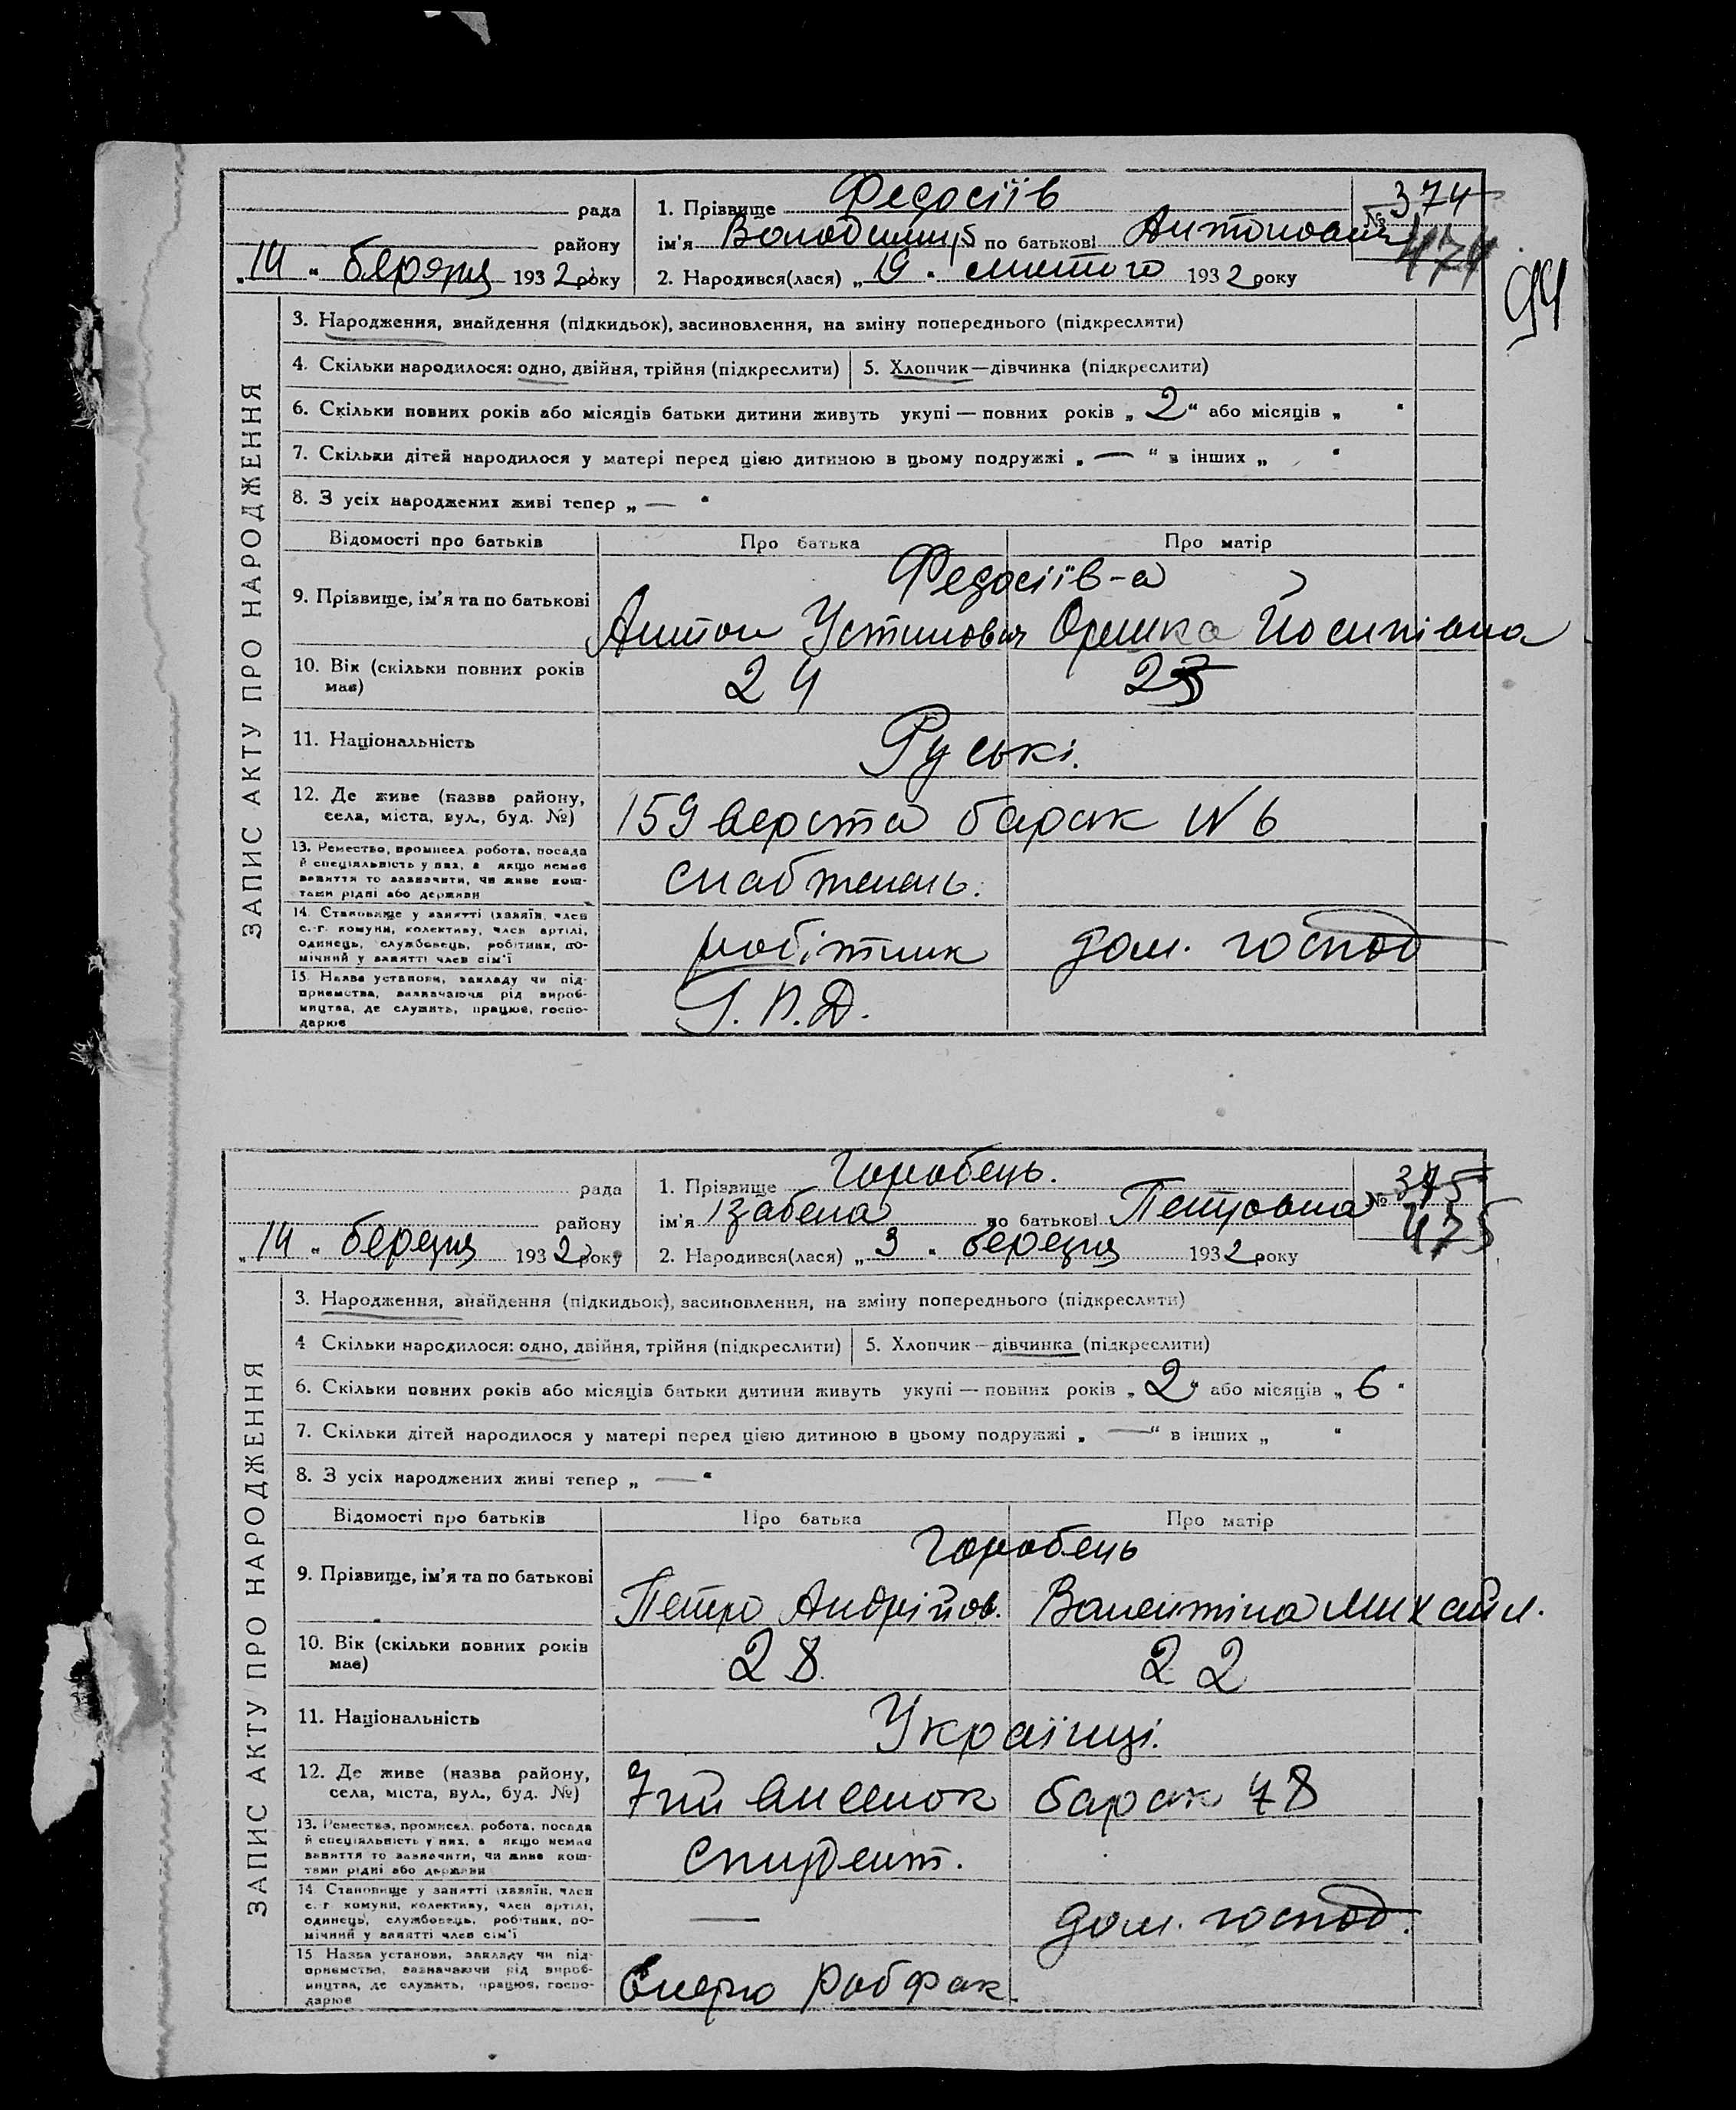 рада
району
„14“ березня 1932 року
1. Прізвище Федосіїв
ім'я Володимир по батькові Антонович
2. Народився(лася) „19“ лютого 1932 року
№ 374
474
94
ЗАПИС АКТУ ПРО НАРОДЖЕННЯ
3. Народження, знайдення (підкидьок), засиновлення, на зміну попереднього (підкреслити)
4. Скільки народилося: одно, двійня, трійня (підкреслити) 5. Хлопчик—дівчинка (підкреслити)
6. Скільки повних років або місяців батьки дитини живуть укупі — повних років „2“ або місяців „ “
7. Скільки дітей народилося у матері перед цією дитиною в цьому подружжі „—“ в інших „ “
8. З усіх народжених живі тепер „—“
Відомості про батьків Про батька Про матір
9. Прізвище, ім'я та по батькові
Федосіїв-а
Антон Устинович Оришка Йосипівна
10. Вік (скільки повних років
має)
24
11. Національність Руські.
12. Де живе (назва району,
села, міста, вул., буд. №)
159 верста барак №6
13. Ремество, промисел, робота, посада
й спеціяльність у них, а якщо немає
заняття то зазначити, чи живе кош-
тами рідні або держави
14. Становище у занятті (хазяїн, член
с.-г. комуни, колективу, член артілі,
одинець, службовець, робітник, по-
мічний у занятті член сім'ї
робітник дом. господ
15. Назва установи, закладу чи під-
приємства, зазначаючи рід вироб-
ництва, де служить, працює, госпо-
дарює
рада
району
„14“ березня 1932 року
1. Прізвище Горобець.
ім'я Ізабела по батькові Петровна
2. Народився(лася) „3“ березня 1932 року
№ 375
475
ЗАПИС АКТУ ПРО НАРОДЖЕННЯ
3. Народження, знайдення (підкидьок), засиновлення, на зміну попереднього (підкреслити)
4 Скільки народилося: одно, двійня, трійня (підкреслити) 5. Хлопчик—дівчинка (підкреслити)
6. Скільки повних років або місяців батьки дитини живуть укупі — повних років „2“ або місяців „6“
7. Скільки дітей народилося у матері перед цією дитиною в цьому подружжі „—“ в інших „ “
8. З усіх народжених живі тепер „—“
Відомості про батьків Про батька Про матір
9. Прізвище, ім'я та по батькові
Горобець
Петро Андрійов. Валентіна Михайл.
10. Вік (скільки повних років
має)
28. 22
11. Національність Українці.
12. Де живе (назва району,
села, міста, вул., буд. №)
барак 48
13. Ремество, промисел, робота, посада
й спеціяльність у них, а якщо немає
заняття то зазначити, чи живе кош-
тами рідні або держави
студент.
14. Становище у занятті (хазяїн, член
с.-г. комуни, колективу, член артілі,
одинець, службовець, робітник, по-
мічний у занятті член сім'ї
— дом. господ.
15 Назва установи, закладу чи під-
приємства, зазначаючи рід вироб-
ництва, де служить, працює, госпо-
дарює
Енерго Робфак.